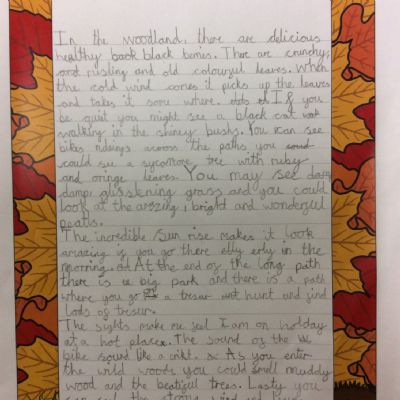 In the woodland, there are delicious
healthy back black berries. There are crunchy,
and rusling and old colourful leaves. When
the cold wind comes it picks up the leaves
and takes it somewhere. If you
be quiet you might see a black cat
walking in the shiney bushs. You can see
bikes ridings across the paths, you
could see a sycomore tree with ruby
and oringe leaves. You may see dark
damp glisstening grass and you could
look at the amazing, bright and wonderful
petals.
The incredible sun rise makes it look
amazing if you go there elly erly in the
morning. At the end of the long path
there is a big park and there is a path
where you go a tresur hunt and find
lods of tresur.
The sights make me feel I am on holday
at a hot place. The sound of the
bike sound like a criket. As you enter
the wild woods you could smell muddy
wood and the beatiful trees. Lasty you
can feel the strong wind and